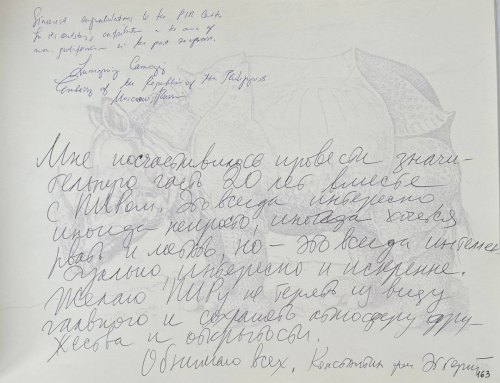 Sincerest congratulations to the PIR Center
for its outstanding contribution to the cause of
non-proliferation in the past
Embassy of the Republic of the Philippines
Moscow, Russia
Мне посчастливилось провести значи-
тельную часть 20 лет вместе
с ПИРом. Это всегда интересно
иногда непросто, иногда хочется
рвать и метать, но - это всегда интеллек
туально интересно и искренне.
Желаю ПИРу не терять из виду
главного и сохранять атмосферу дру-
жества и открытости.
Обнимаю всех, Константин фон Эггерт
163